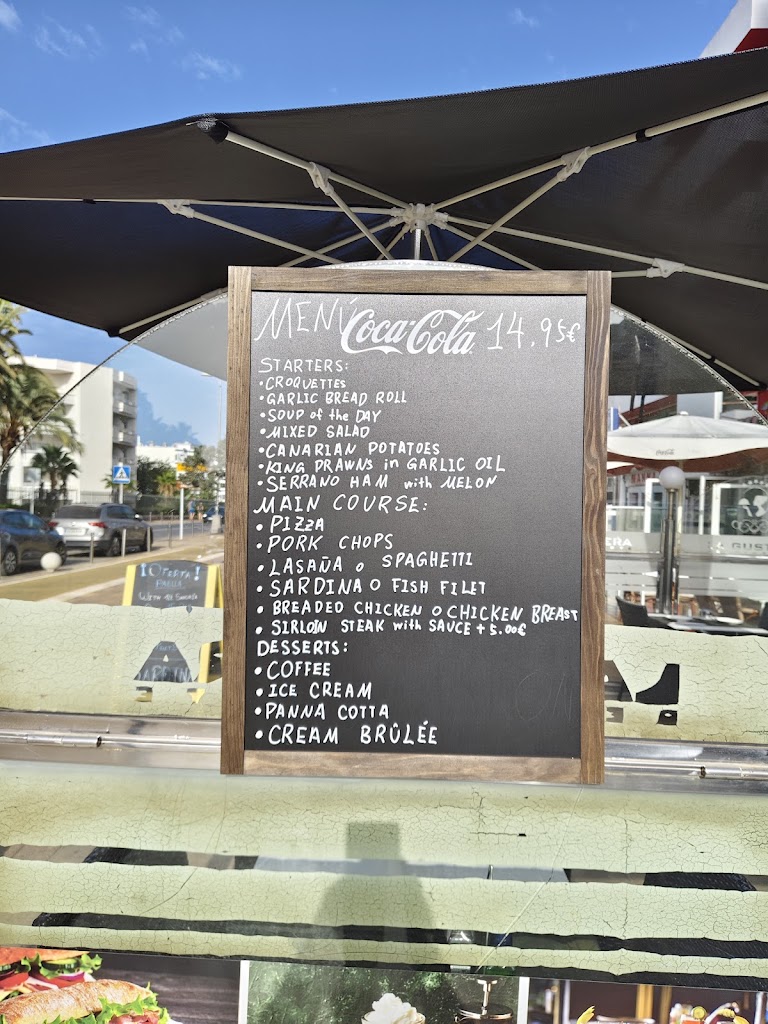 MENÚ Coca-Cola 14.95€
STARTERS:
• CROQUETTES
• GARLIC BREAD ROLL
• SOUP of the DAY
• MIXED SALAD
• CANARIAN POTATOES
• KING PRAWNS in GARLIC OIL
• SERRANO HAM with MELON
MAIN COURSE:
• PIZZA
• PORK CHOPS
• LASAÑA o SPAGHETTI
• SARDINA O FISH FILET
• BREADED CHICKEN O CHICKEN BREAST
• SIRLOIN STEAK with SAUCE + 5.00€
DESSERTS:
• COFFEE
• ICE CREAM
• PANNA COTTA
• CREAM BRÛLÉE
¡OFERTA!